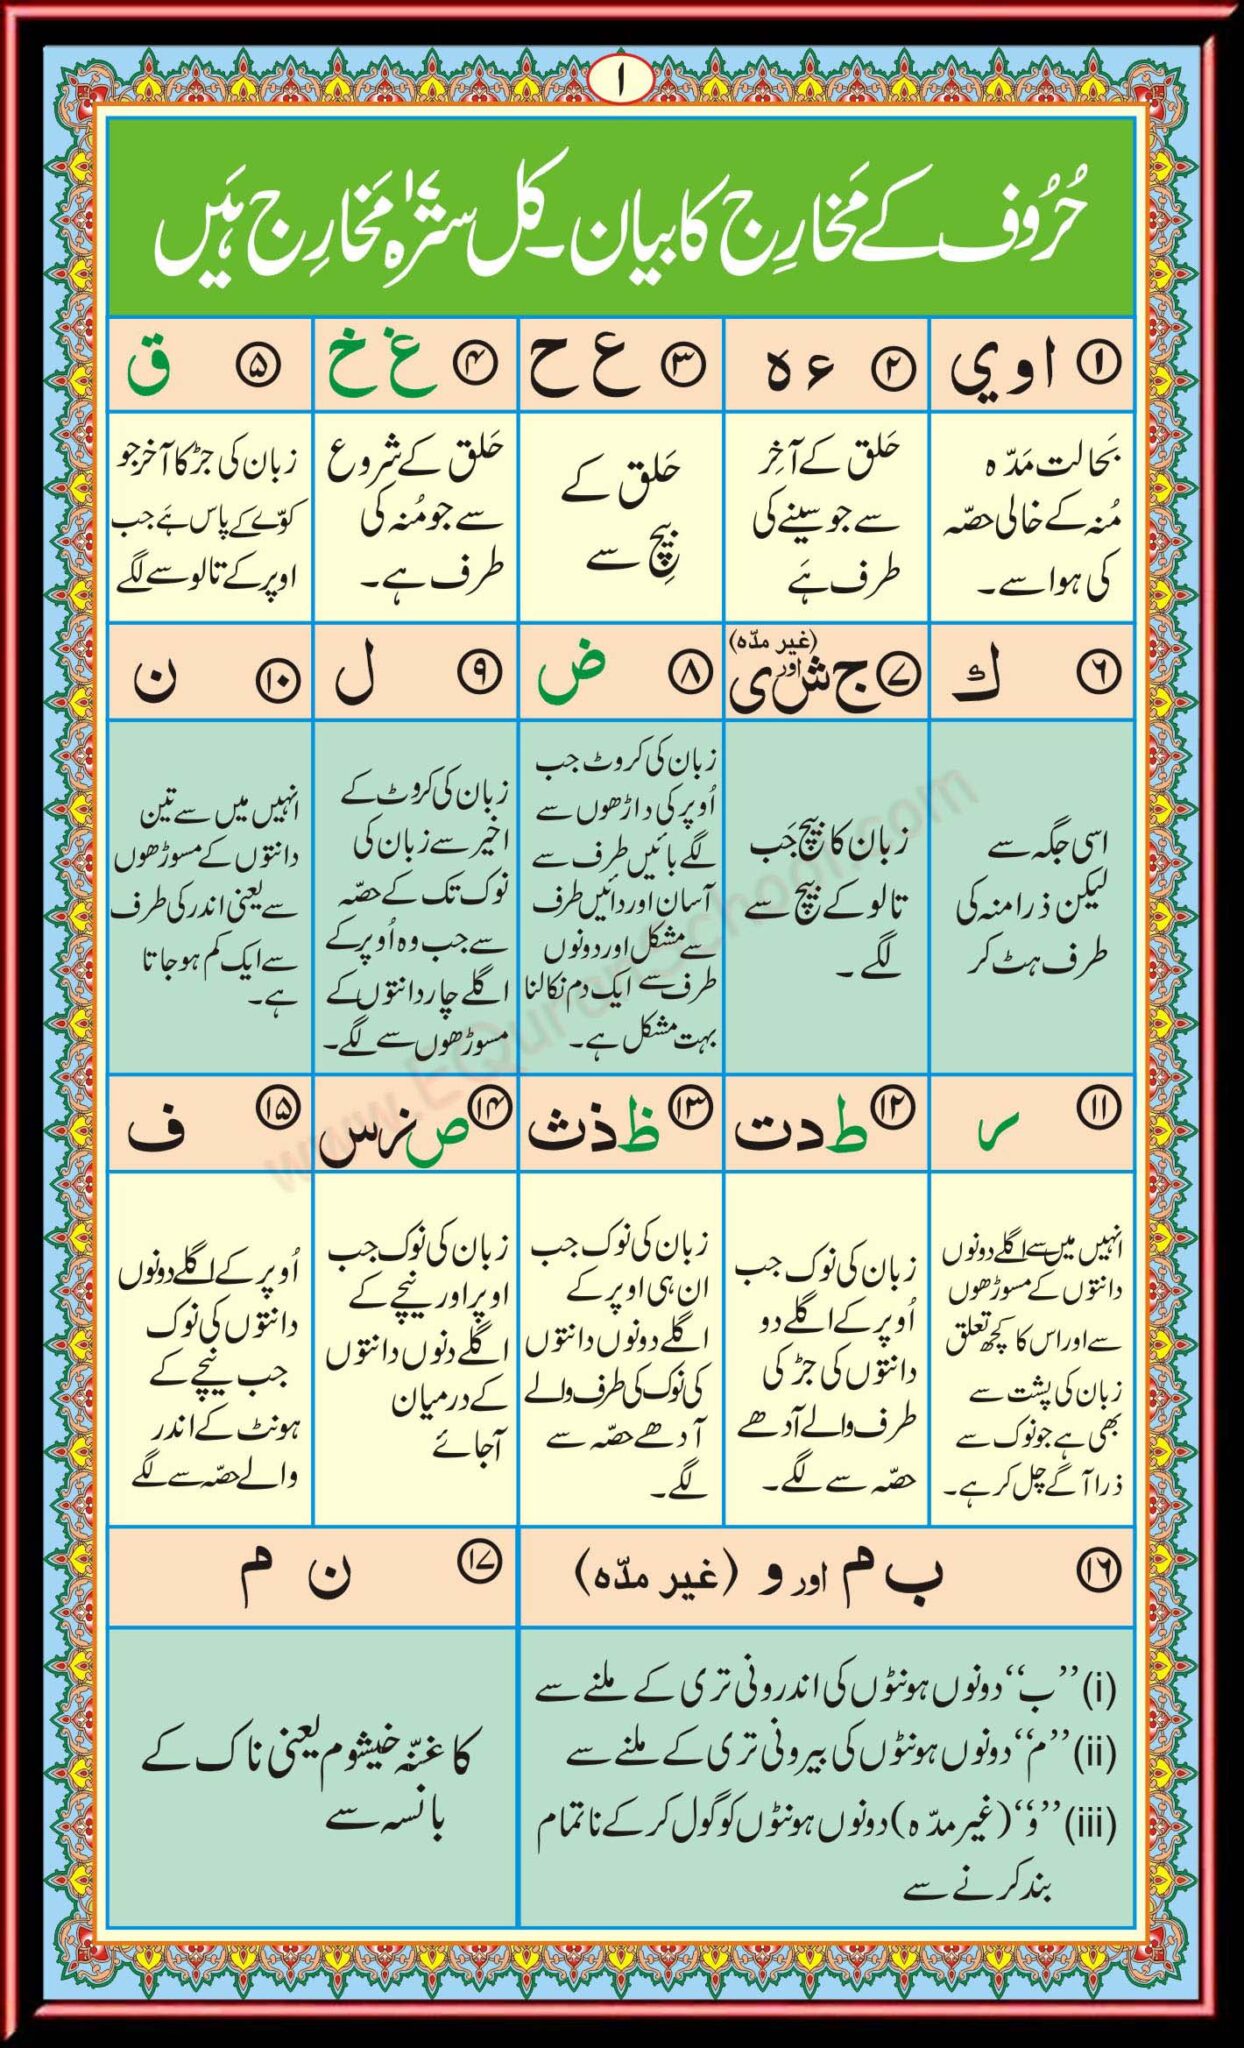 ا
حُرُوف کے مَخارِج کا بیان۔ کل سترہ ۱۷ مَخارِج ہَیں
۱ ا و ي
بَحالت مَدّہ
مُنہ کے خالی حصّہ
کی ہوا سے۔
۲ ء ہ
حَلق کے آخِر
سے جو سینے کی
طرف ہَے
۳ ع ح
حَلق کے
بِیچ سے
۴ غ خ
حَلق کے شروع
سے جو مُنہ کی
طرف ہے۔
۵ ق
زبان کی جڑ کا آخر جو
کوّے کے پاس ہَے جب
اوپر کے تالو سے لگے
۶ ك
اسی جگہ سے
لیکن ذرا منہ کی
طرف ہٹ کر
۷ ج ش اور ی (غیر مدّہ)
زبان کا بیچ جَب
تالو کے بیچ سے
لگے۔
۸ ض
زبان کی کروٹ جب
اُوپر کی داڑھوں سے
لگے بائیں طرف سے
آسان اور دائیں طرف
سے مشکل اور دونوں
طرف سے ایک دم نکالنا
بہت مشکل ہے۔
۹ ل
زبان کی کروٹ کے
اخیر سے زبان کی
نوک تک کے حصّہ
سے جب وہ اُوپر کے
اگلے چار دانتوں کے
مسوڑھوں سے لگے۔
۱۰ ن
انہیں میں سے تین
دانتوں کے مسوڑھوں
سے یعنی اندر کی طرف
سے ایک کم ہو جاتا
ہے۔
۱۱ ر
انہیں میں سے اگلے دونوں
دانتوں کے مسوڑھوں
سے اور اس کا کچھ تعلق
زبان کی پشت سے
بھی ہے جو نوک سے
ذرا آگے چل کر ہے۔
۱۲ ط د ت
زبان کی نوک جب
اُوپر کے اگلے دو
دانتوں کی جڑ کی
طرف والے آدھے
حصّہ سے لگے۔
۱۳ ظ ذ ث
زبان کی نوک جب
ان ہی اوپر کے
اگلے دونوں دانتوں
کی نوک کی طرف والے
آدھے حصّہ سے
لگے۔
۱۴ ص ز س
زبان کی نوک جب
اوپر اور نیچے کے
اگلے دنوں دانتوں
کے درمیان
آجائے
۱۵ ف
اُوپر کے اگلے دونوں
دانتوں کی نوک
جب نیچے کے
ہونٹ کے اندر
والے حصّہ سے لگے
۱۶ ب م اور و (غیر مدّہ)
(i) ”ب“ دونوں ہونٹوں کی اندرونی تری کے ملنے سے
(ii) ”م“ دونوں ہونٹوں کی بیرونی تری کے ملنے سے
(iii) ”و“ (غیر مدّہ) دونوں ہونٹوں کو گول کر کے ناتمام
بند کرنے سے
۱۷ ن م
کا غنّہ خیشوم یعنی ناک کے
بانسہ سے
www.EQuranSchool.com